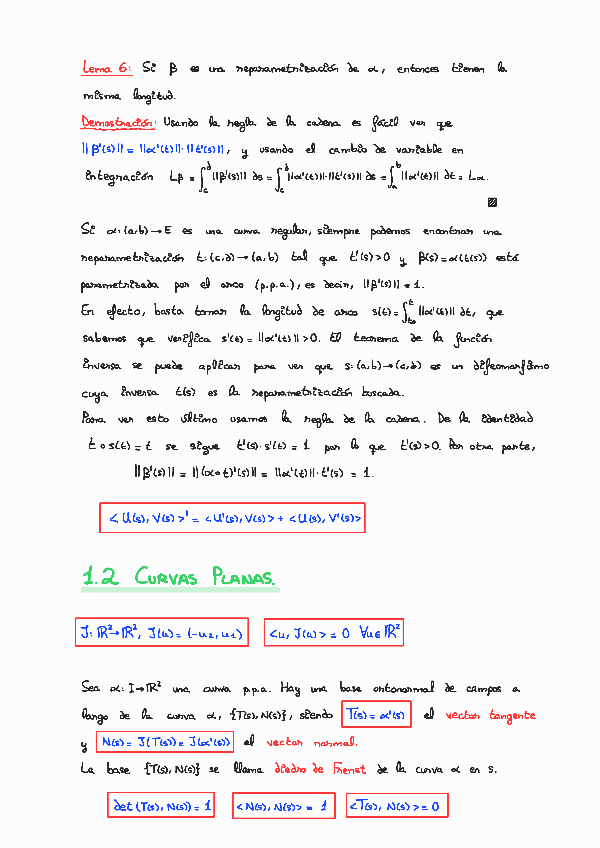 Lema 6: Si β es una reparametrización de α, entonces tienen la
misma longitud.
Demostración: Usando la regla de la cadena es fácil ver que
||β'(s)|| = ||α'(t)||·||t'(s)||, y usando el cambio de variable en
integración Lβ = ∫_c^d ||β'(s)|| ds = ∫_c^d ||α'(t)||·||t'(s)|| ds = ∫_a^b ||α'(t)|| dt = Lα.
Si α:(a,b)→E es una curva regular, siempre podemos encontrar una
reparametrización t:(c,d)→(a,b) tal que t'(s)>0 y β(s)=α(t(s)) está
parametrizada por el arco (p.p.a.), es decir, ||β'(s)|| = 1.
En efecto, basta tomar la longitud de arco s(t)=∫_{t₀}^t ||α'(t)|| dt, que
sabemos que verifica s'(t)=||α'(t)||>0. El teorema de la función
inversa se puede aplicar para ver que s:(a,b)→(c,d) es un difeomorfismo
cuya inversa t(s) es la reparametrización buscada.
Para ver esto último usamos la regla de la cadena. De la identidad
t∘s(t)=t se sigue t'(s)·s'(t)=1 por lo que t'(s)>0. Por otra parte,
||β'(s)|| = ||(α∘t)'(s)|| = ||α'(t)||·t'(s) = 1.
<U(s), V(s)>' = <U'(s), V(s)> + <U(s), V'(s)>
1.2 CURVAS PLANAS.
J: ℝ²→ℝ², J(u)=(-u₂, u₁) <u, J(u)> = 0 ∀u∈ℝ²
Sea α: I→ℝ² una curva p.p.a. Hay una base ortonormal de campos a
largo de la curva α, {T(s), N(s)}, siendo T(s)=α'(s) el vector tangente
y N(s) = J(T(s)) = J(α'(s)) el vector normal.
La base {T(s), N(s)} se llama diedro de Frenet de la curva α en s.
det(T(s), N(s)) = 1 <N(s), N(s)> = 1 <T(s), N(s)> = 0